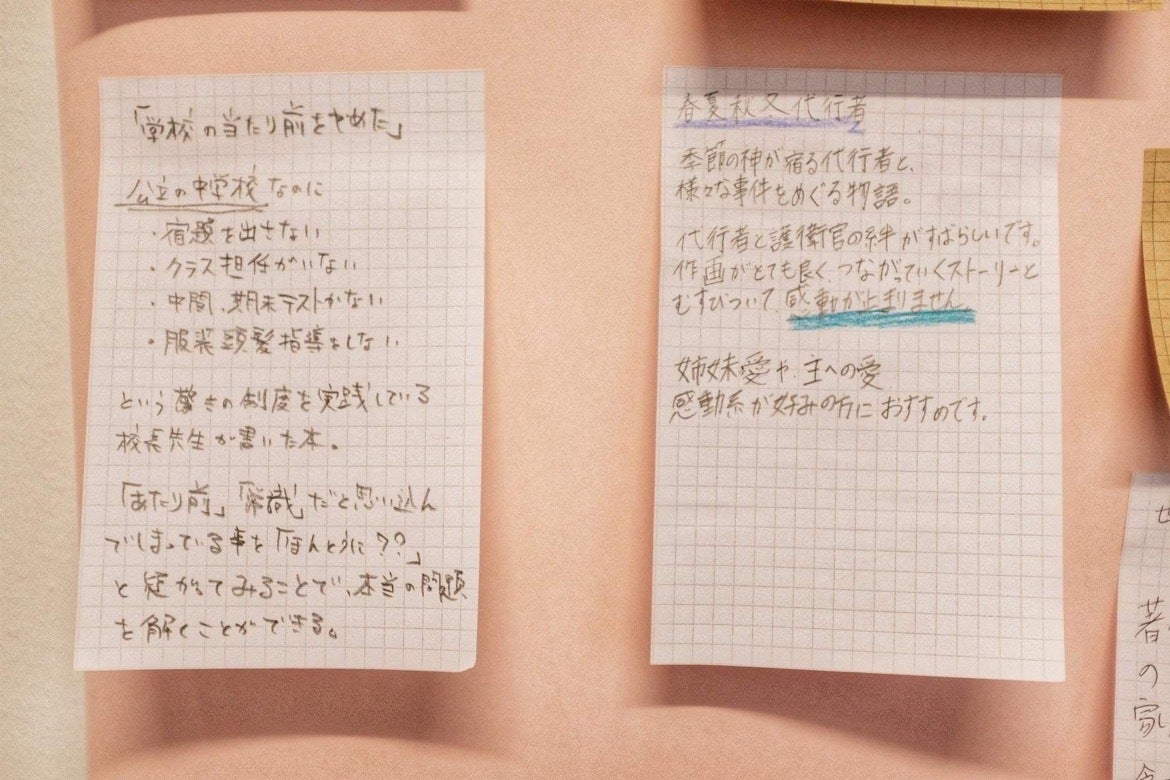 「学校の当たり前をやめた」
公立の中学校なのに
・宿題を出さない
・クラス担任がいない
・中間、期末テストがない
・服装頭髪指導をしない
という驚きの制度を実践している
校長先生が書いた本。
「あたり前」「常識」だと思い込ん
でしまっている事を「ほんとうに??」
と疑がってみることで、本当の問題
を解くことができる。
春夏秋冬代行者
季節の神が宿る代行者と、
様々な事件をめぐる物語。
代行者と護衛官の絆がすばらしいです。
作画がとても良く、つながっていくストーリーと
むすびついて、感動が止まりません
姉妹愛や、主への愛
感動系が好みの方におすすめです。
著の家